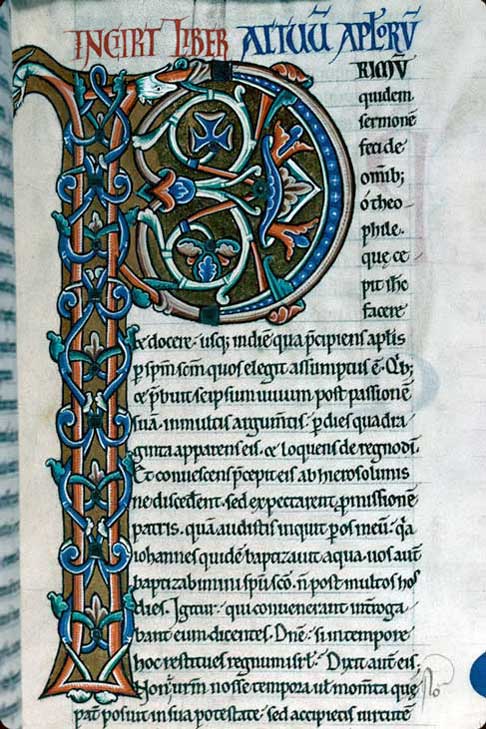 INCIPIT LIBER ACTUŪ APL'ORŪ
RIMŪ
quidem
sermonē
feci de
om̄ib;
ó theo
phile.
que ce
pit ih̄c
facere
& docere. usq; indiē qua p̄cipiens apl̄is
p sp̄m sc̄m quos elegit assumptus ē. Qb;
& p̄buit seipsum uiuum post passionē
suā. inmultis argum̄tis. p dies quadra
ginta apparens eis. & loquens de regno dī.
Et conuescens p̄cepit eis. ab hierosolimis
ne discedent. sed expectarent ꝓmissionē
patris. quā audistis inquit p os meū. q̄a
iohannes quidē baptizauit aqua. uos aut̄
baptizabimini sp̄u sc̄o. n̄ post multos hos
dies. Igitur. qui conuenerant int̄roga
bant eum dicentes. Dn̄e. si intempore
hoc restitues regnum isrl̄. Dixit aut̄ eis.
Non ur̄m nosse tempora ul̄ mom̄ta que
pat̄ posuit in sua potestate. sed accipietis uirtutē